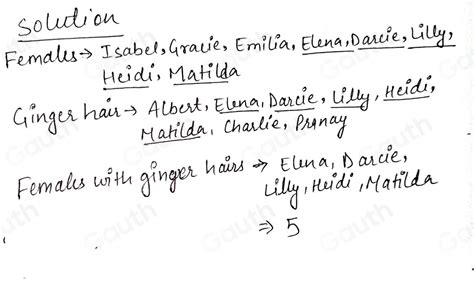 Solution
Females → Isabel, Gracie, Emilia, Elena, Darcie, Lilly,
Heidi, Matilda
Ginger hair → Albert, Elena, Darcie, Lilly, Heidi,
Matilda, Charlie, Pranay
Females with ginger hairs → Elena, Darcie,
Lilly, Heidi, Matilda
⇒ 5